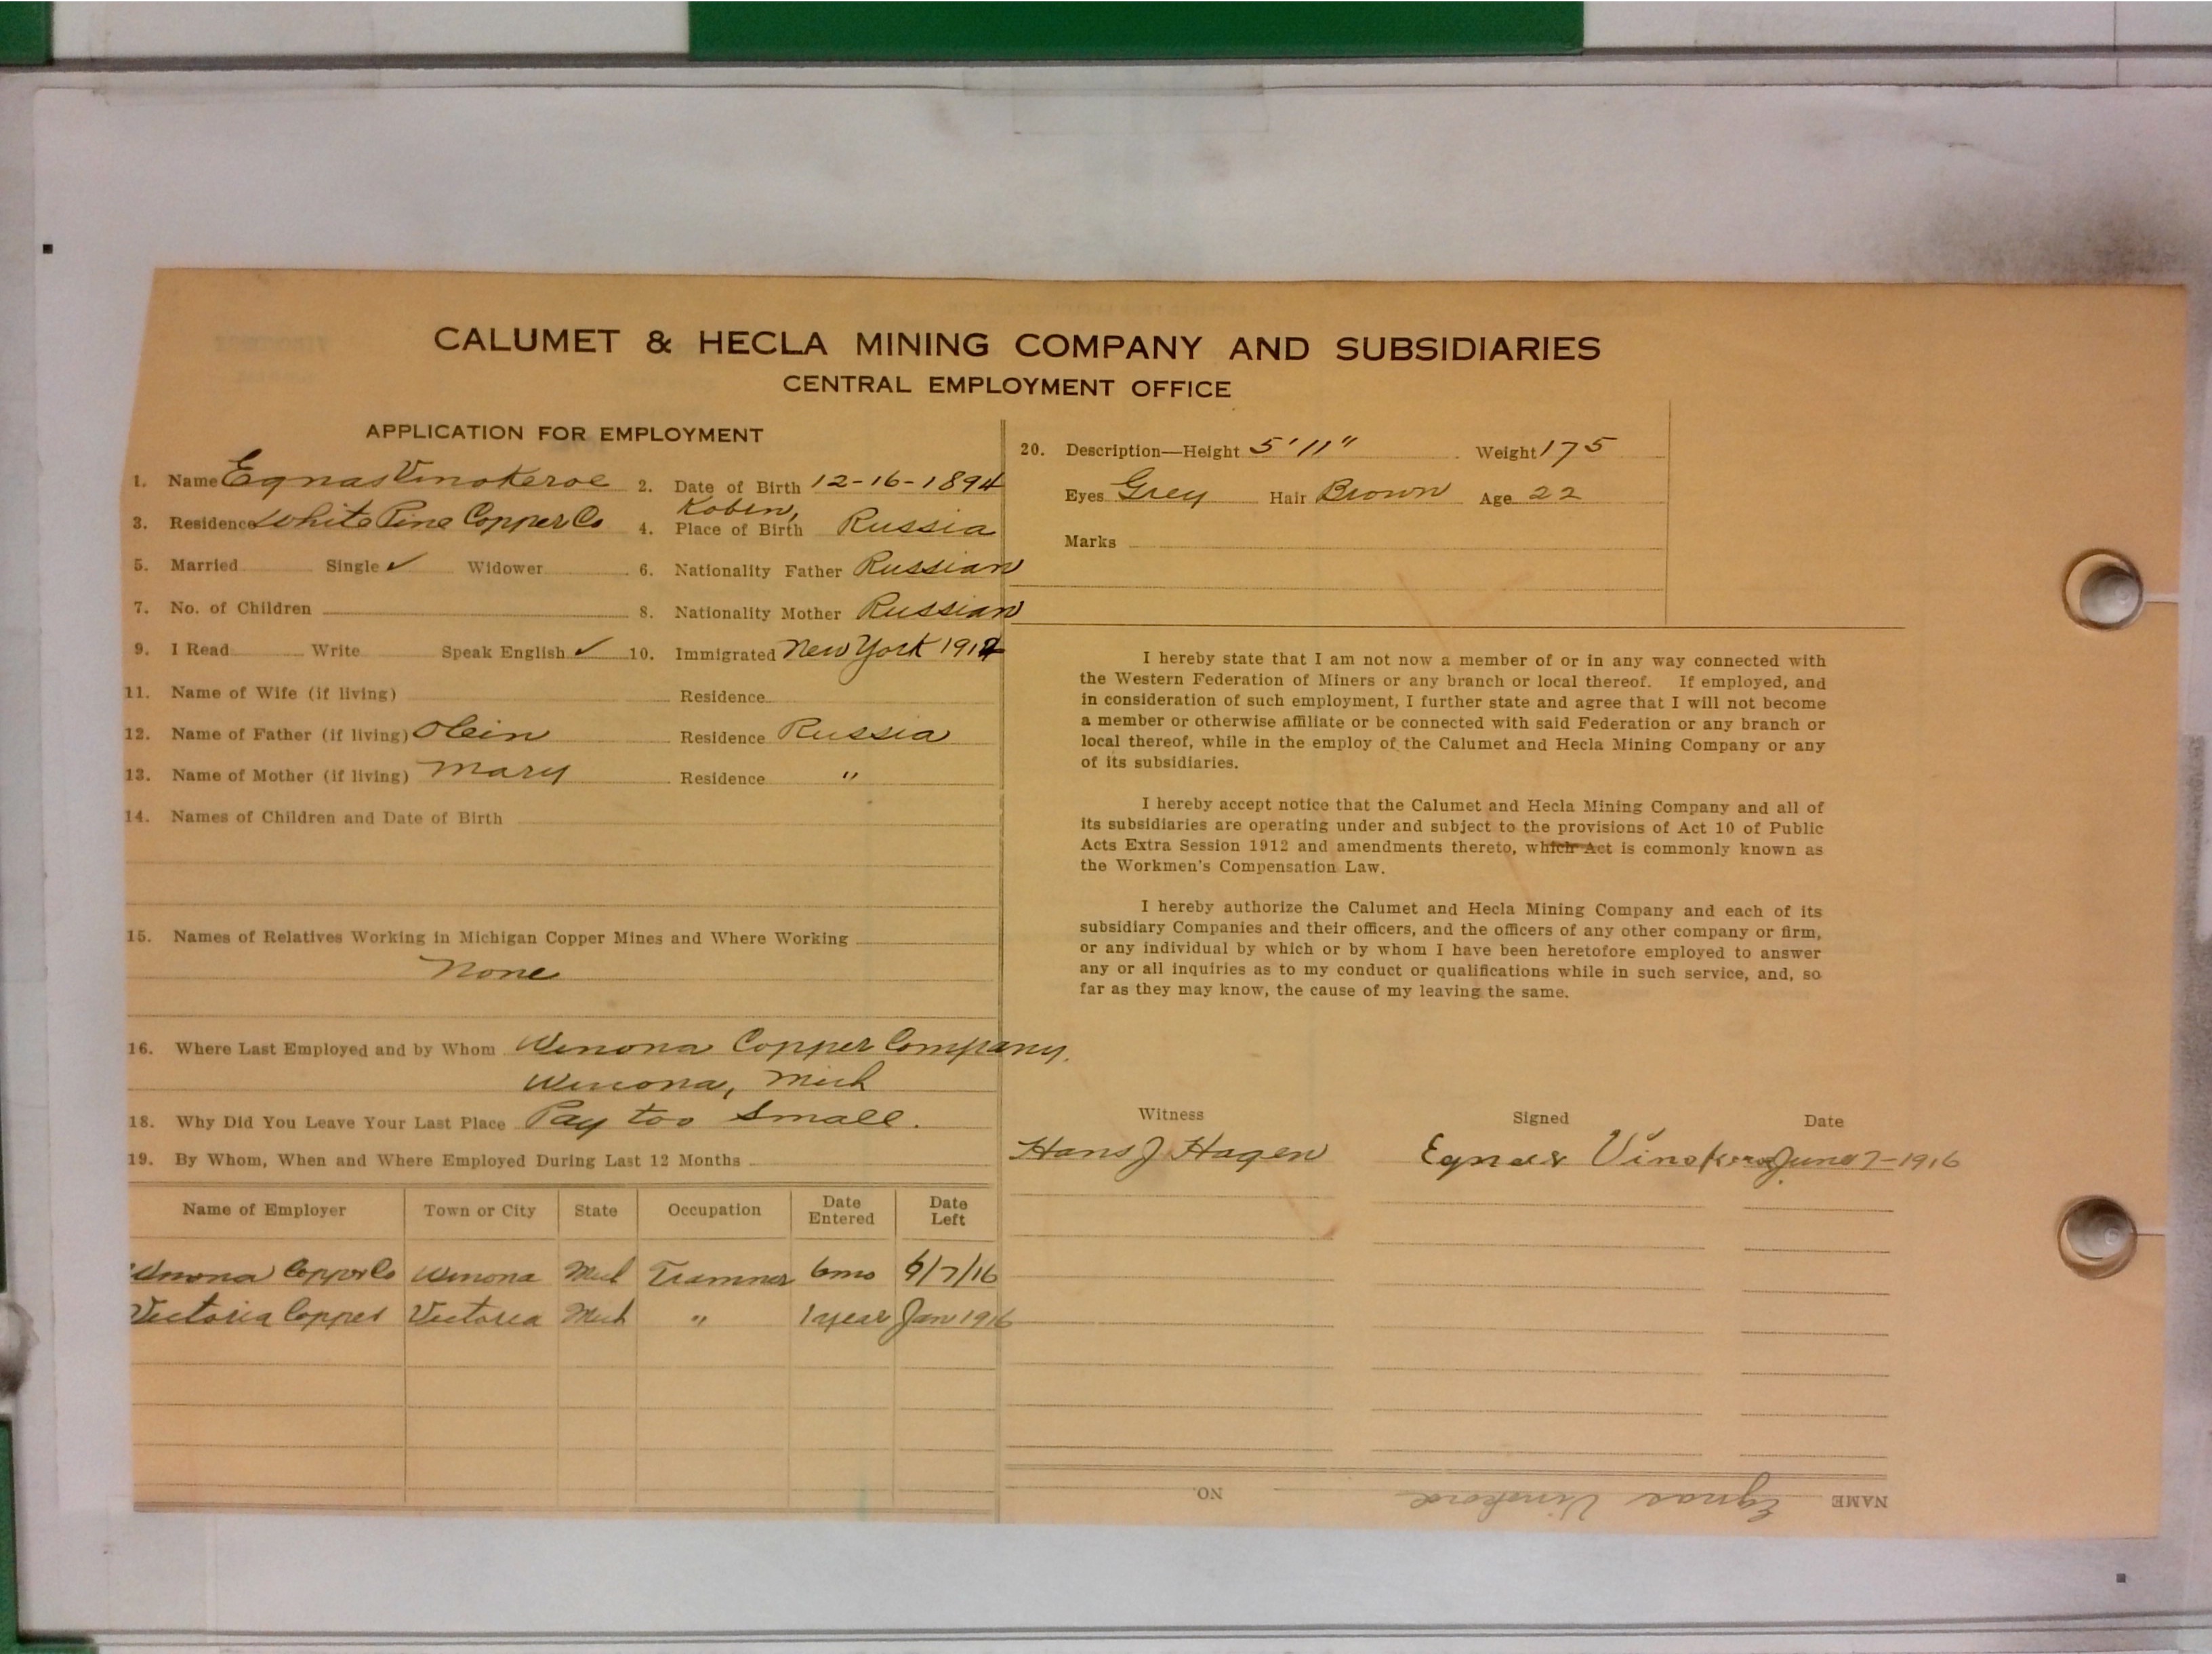 CALUMET & HECLA MINING COMPANY AND SUBSIDIARIES
CENTRAL EMPLOYMENT OFFICE
APPLICATION FOR EMPLOYMENT
1. Name Egnas Vinokeroe 2. Date of Birth 12-16-1894
3. Residence White Pine Copper Co 4. Place of Birth Koben, Russia
5. Married Single ✓ Widower 6. Nationality Father Russian
7. No. of Children 8. Nationality Mother Russian
9. I Read Write Speak English ✓ 10. Immigrated New York 1912
11. Name of Wife (if living) Residence
12. Name of Father (if living) Olein Residence Russia
13. Name of Mother (if living) Mary Residence "
14. Names of Children and Date of Birth
15. Names of Relatives Working in Michigan Copper Mines and Where Working
None
16. Where Last Employed and by Whom Winona Copper Company,
Winona, Mich
18. Why Did You Leave Your Last Place Pay too Small.
19. By Whom, When and Where Employed During Last 12 Months
Name of Employer Town or City State Occupation Date Entered Date Left
Winona Copper Co Winona Mich Trammer 6mo 6/7/16
Victoria Copper Victoria Mich " 1 year Jan 1916
20. Description—Height 5'11" Weight 175
Eyes Grey Hair Brown Age 22
Marks
I hereby state that I am not now a member of or in any way connected with
the Western Federation of Miners or any branch or local thereof. If employed, and
in consideration of such employment, I further state and agree that I will not become
a member or otherwise affiliate or be connected with said Federation or any branch or
local thereof, while in the employ of the Calumet and Hecla Mining Company or any
of its subsidiaries.
I hereby accept notice that the Calumet and Hecla Mining Company and all of
its subsidiaries are operating under and subject to the provisions of Act 10 of Public
Acts Extra Session 1912 and amendments thereto, which Act is commonly known as
the Workmen's Compensation Law.
I hereby authorize the Calumet and Hecla Mining Company and each of its
subsidiary Companies and their officers, and the officers of any other company or firm,
or any individual by which or by whom I have been heretofore employed to answer
any or all inquiries as to my conduct or qualifications while in such service, and, so
far as they may know, the cause of my leaving the same.
Witness Signed Date
Hans J Hagen Egnas Vinokeroe June 7-1916
NAME Egnas Vinokeroe NO.